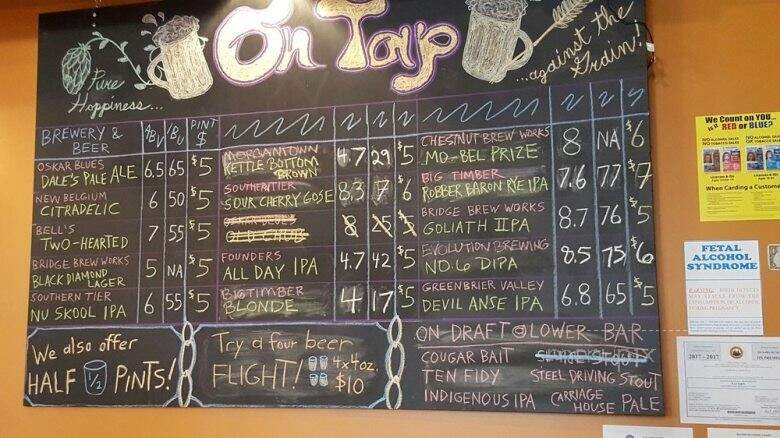 On Tap
Pure Hoppiness...
...against the Grain!
BREWERY & BEER ABV IBU PINT $
OSKAR BLUES
DALE'S PALE ALE 6.5 65 $5
NEW BELGIUM
CITRADELIC 6 50 $5
BELL'S
TWO-HEARTED 7 55 $5
BRIDGE BREW WORKS
BLACK DIAMOND LAGER 5 NA $5
SOUTHERN TIER
NU SKOOL IPA 6 55 $5
MORGANTOWN
KETTLE BOTTOM BROWN 4.7 29 $5
SOUTHERN TIER
SOUR CHERRY GOSE 8.3 7 $6
OSKAR BLUES
OLD CHUB 8 25 $5
FOUNDERS
ALL DAY IPA 4.7 42 $5
BIG TIMBER
BLONDE 4 17 $5
CHESTNUT BREW WORKS
MO-BEL PRIZE 8 NA $6
BIG TIMBER
ROBBER BARON RYE IPA 7.6 77 $7
BRIDGE BREW WORKS
GOLIATH IIPA 8.7 76 $5
EVOLUTION BREWING
NO.6 DIPA 8.5 75 $6
GREENBRIER VALLEY
DEVIL ANSE IPA 6.8 65 $5
We also offer
HALF 1/2 PINTS!
Try a four beer
FLIGHT! 4x4oz.
$10
ON DRAFT @ LOWER BAR
COUGAR BAIT
TEN FIDY STEEL DRIVING STOUT
INDIGENOUS IPA CARRIAGE HOUSE PALE
We Count on YOU...
is it RED or BLUE?
NO ALCOHOL SALES
NO TOBACCO SALES
When Carding a Custome
FETAL
ALCOHOL
SYNDROME
2017 - 2017